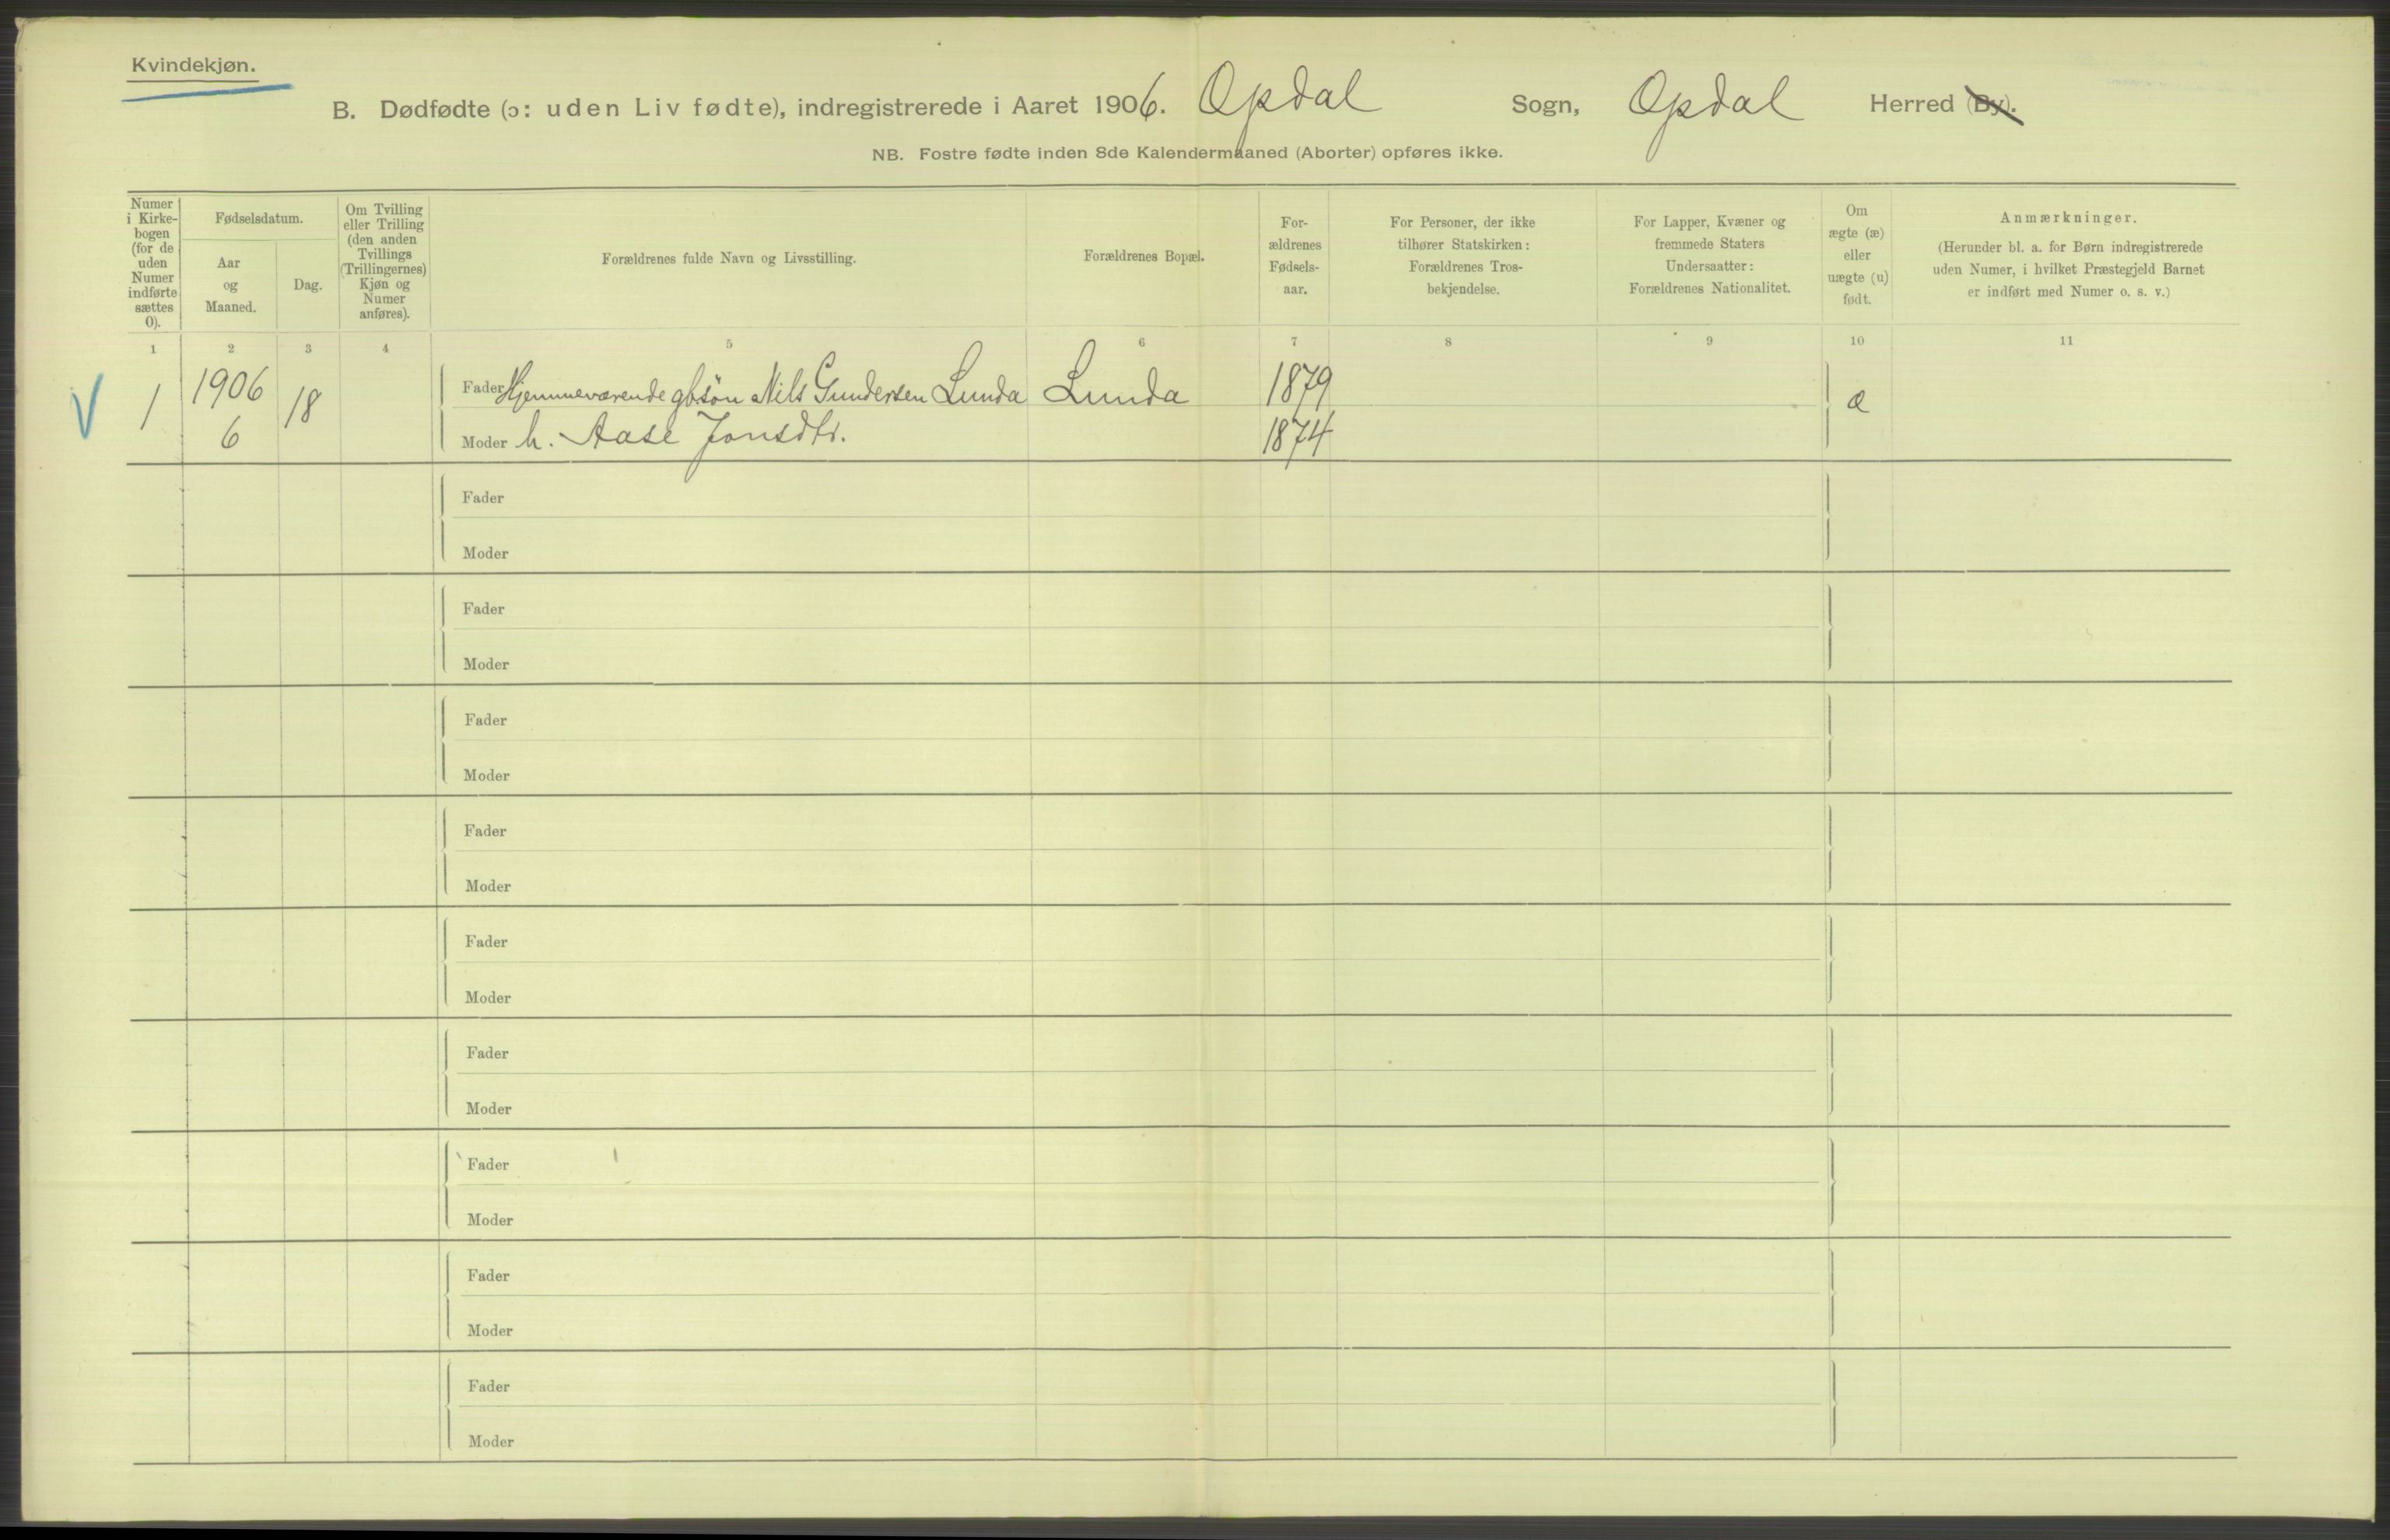 Kvindekjøn.
B. Dødfødte (ɔ: uden Liv fødte), indregistrerede i Aaret 1906. Opdal Sogn, Opdal Herred (By).
NB. Fostre fødte inden 8de Kalendermaaned (Aborter) opføres ikke.
Numer
i Kirke-
bogen
(for de
uden
Numer
indførte
sættes
0).
Fødselsdatum.
Aar
og
Maaned.
Dag.
Om Tvilling
eller Trilling
(den anden
Tvillings
(Trillingernes)
Kjøn og
Numer
anføres).
Forældrenes fulde Navn og Livsstilling.
Forældrenes Bopæl.
For-
ældrenes
Fødsels-
aar.
For Personer, der ikke
tilhører Statskirken:
Forældrenes Tros-
bekjendelse.
For Lapper, Kvæner og
fremmede Staters
Undersaatter:
Forældrenes Nationalitet.
Om
ægte (æ)
eller
uægte (u)
født.
Anmærkninger.
(Herunder bl. a. for Børn indregistrerede
uden Numer, i hvilket Præstegjeld Barnet
er indført med Numer o. s. v.)
1 2 3 4 5 6 7 8 9 10 11
V 1 1906 6 18
Fader Hjemmeværende gbsøn Nils Gundersen Lunda Lunda 1879 æ
Moder h. Aase Jonsdtr. 1874
Fader
Moder
Fader
Moder
Fader
Moder
Fader
Moder
Fader
Moder
Fader
Moder
Fader
Moder
Fader
Moder
Fader
Moder